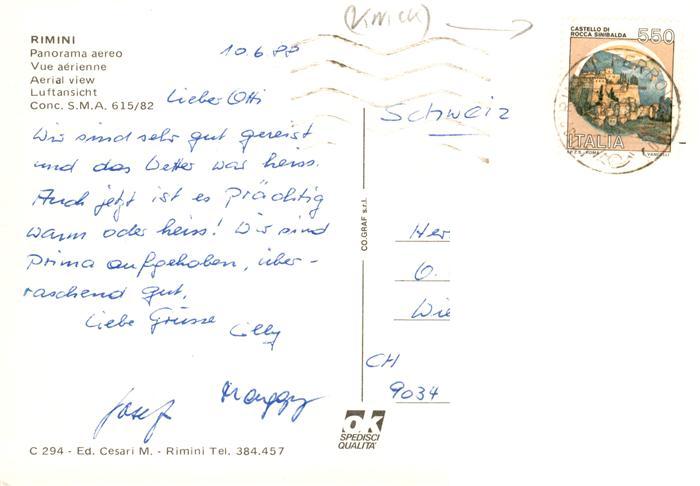 RIMINI
Panorama aereo
Vue aérienne
Aerial view
Luftansicht
Conc. S.M.A. 615/82
10.6.88
(KNICK)
CASTELLO DI
ROCCA SINIBALDA
550
ITALIA
Lieber Otti
Wir sind sehr gut gereist
und das Wetter war heiss.
Auch jetzt ist es Prächtig
warm oder heiss! Wir sind
prima aufgehoben, über-
raschend gut.
Liebe Grüsse Lilly
Josef
CO.GRAF s.r.l.
Schweiz
Her
O.
Wie
CH
9034
ok
SPEDISCI
QUALITA'
C 294 - Ed. Cesari M. - Rimini Tel. 384.457